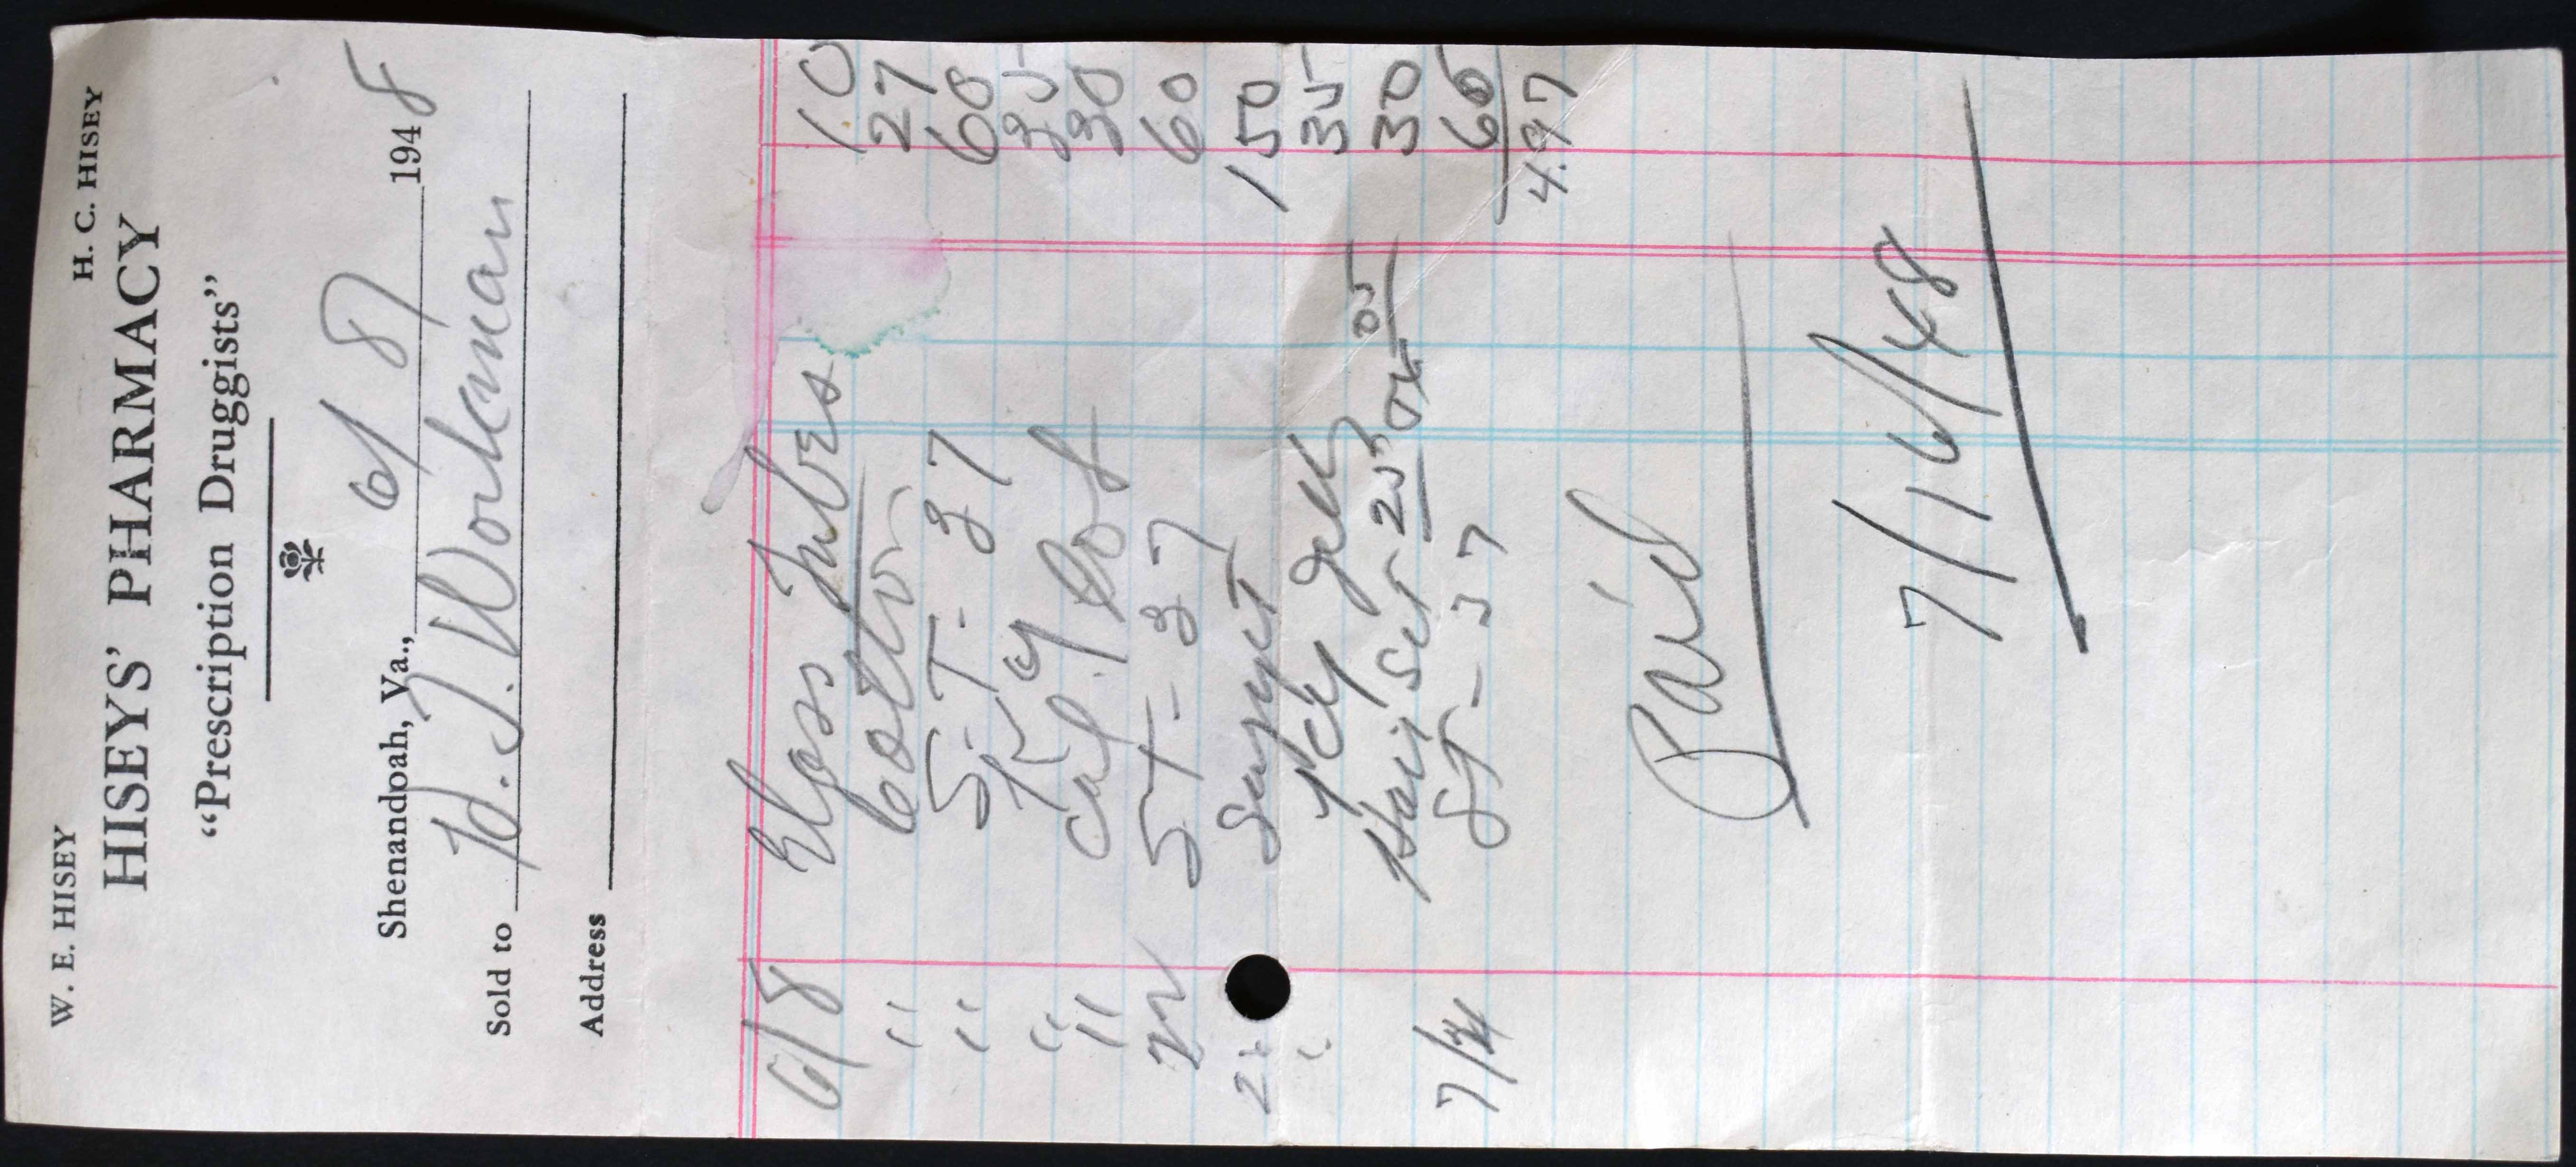 W. E. HISEY H. C. HISEY
HISEYS' PHARMACY
"Prescription Druggists"
Shenandoah, Va., 6/8/ 1948
Sold to H. J. Workman
Address
6/8 Glass Tubes 10
" Cotton 27
" S.T. 37 60
" K Y 35
" Cal. Lof 30
22 S T - 37 60
1 50
" K Y Jell 35
Hair Set 25 05 30
7/2 ST - 37 60
4.97
Paid
7/16/48